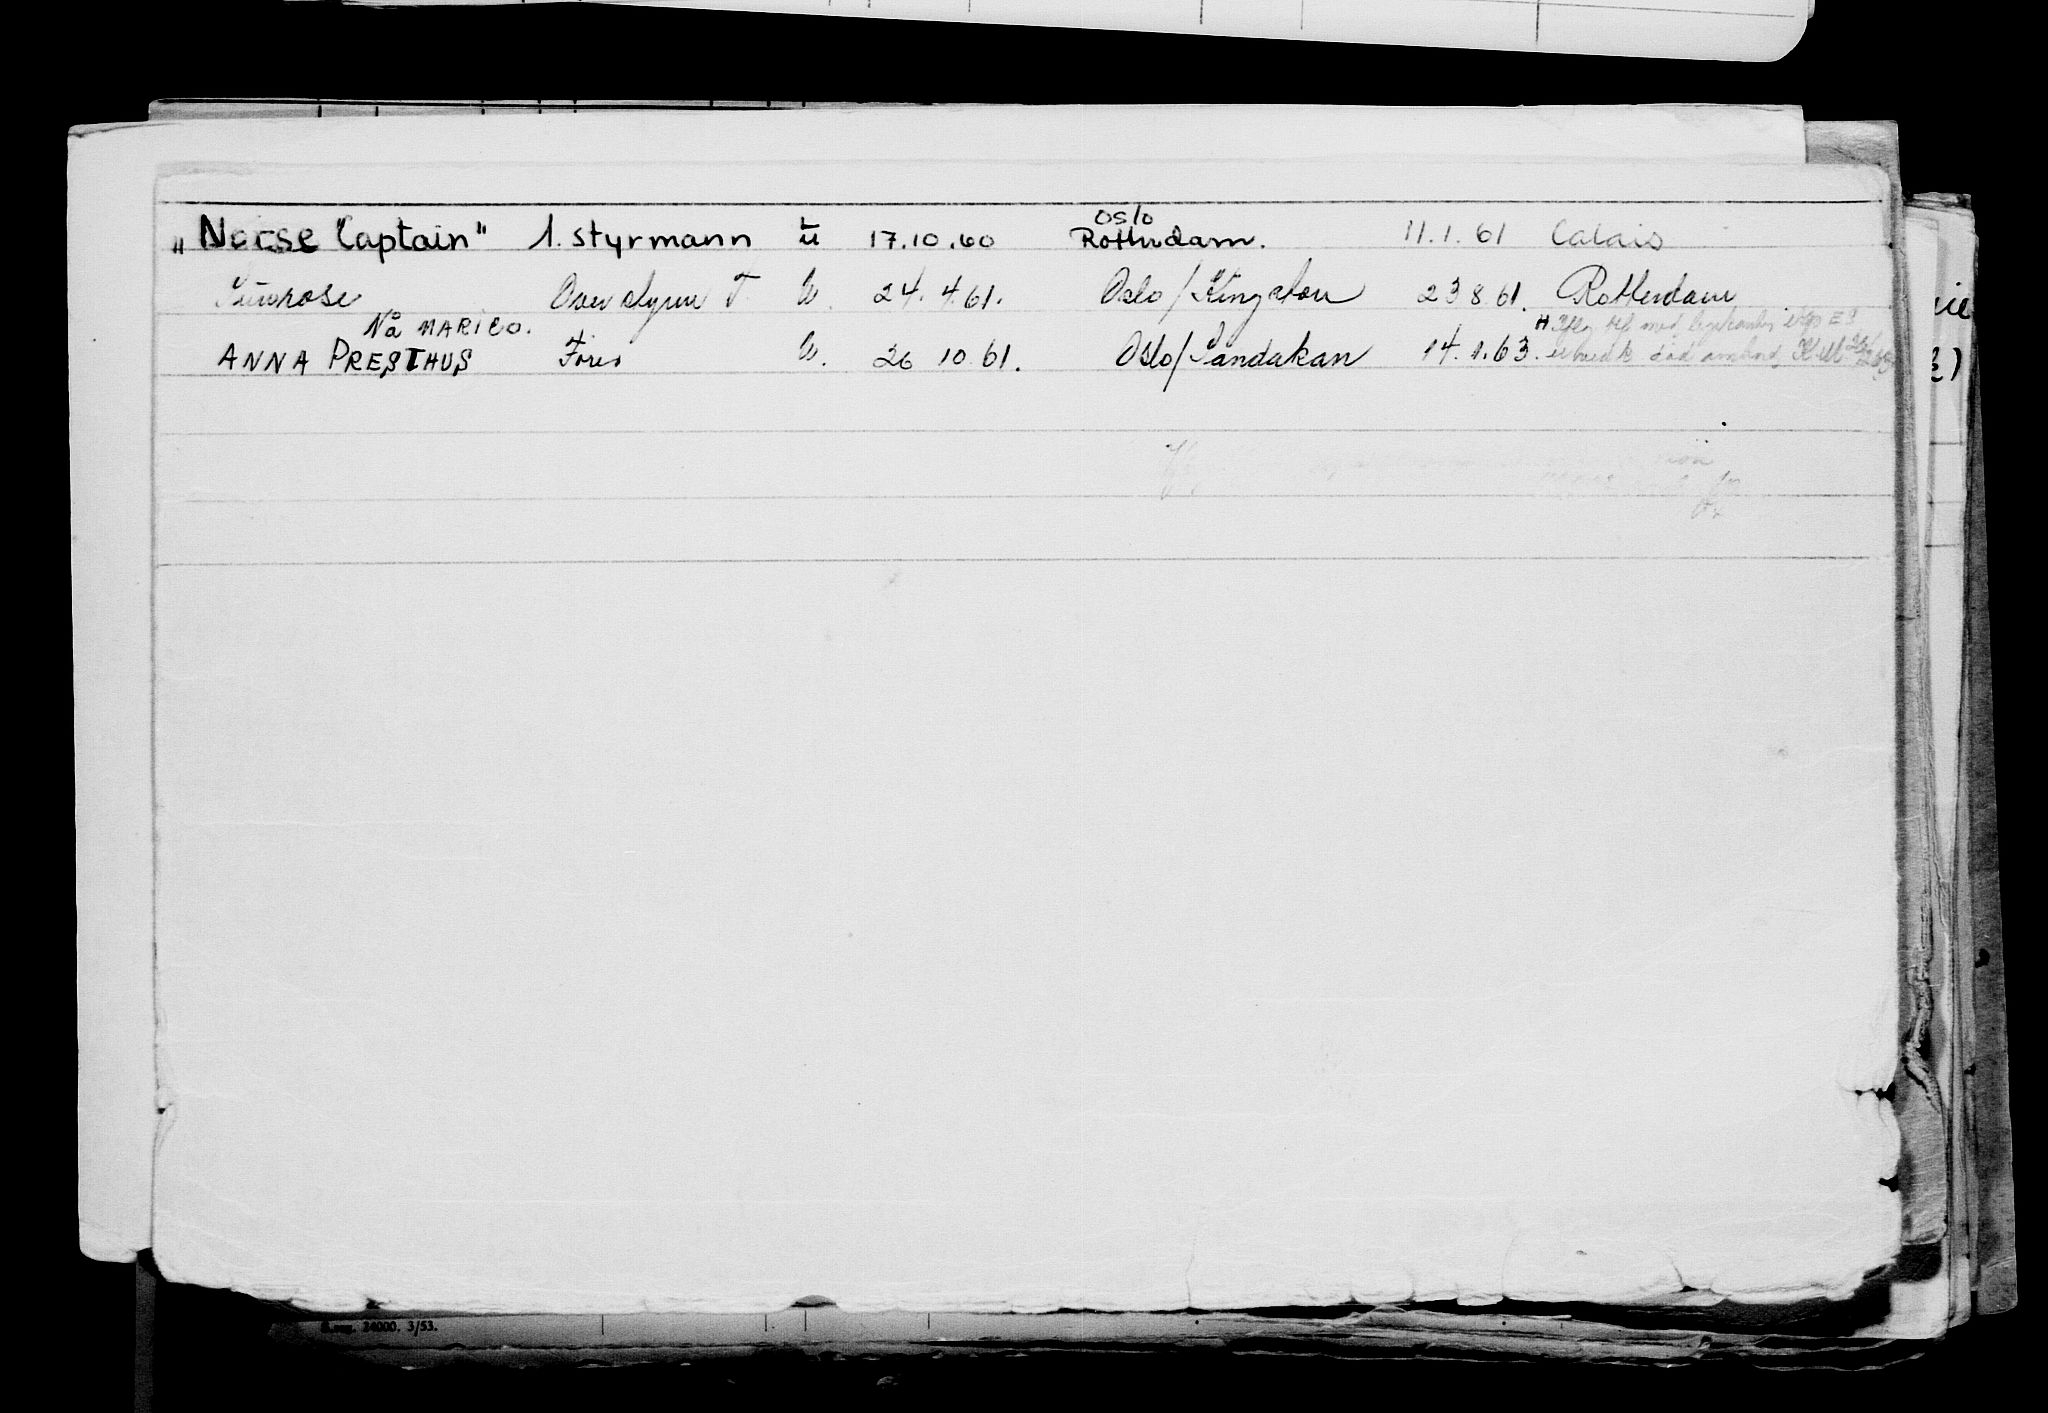 „Norse Captain" 1. styrmann u 17.10.60 Oslo Rotterdam. 11.1.61 Calais
Overstyrm T. U. 24.4.61. Oslo/Kingston 23 8 61. Rotterdam
Nå MARICO.
ANNA PRESTHUS Fører U. 26 10.61. Oslo/Sandakan 14.1.63.
24000. 3/53.